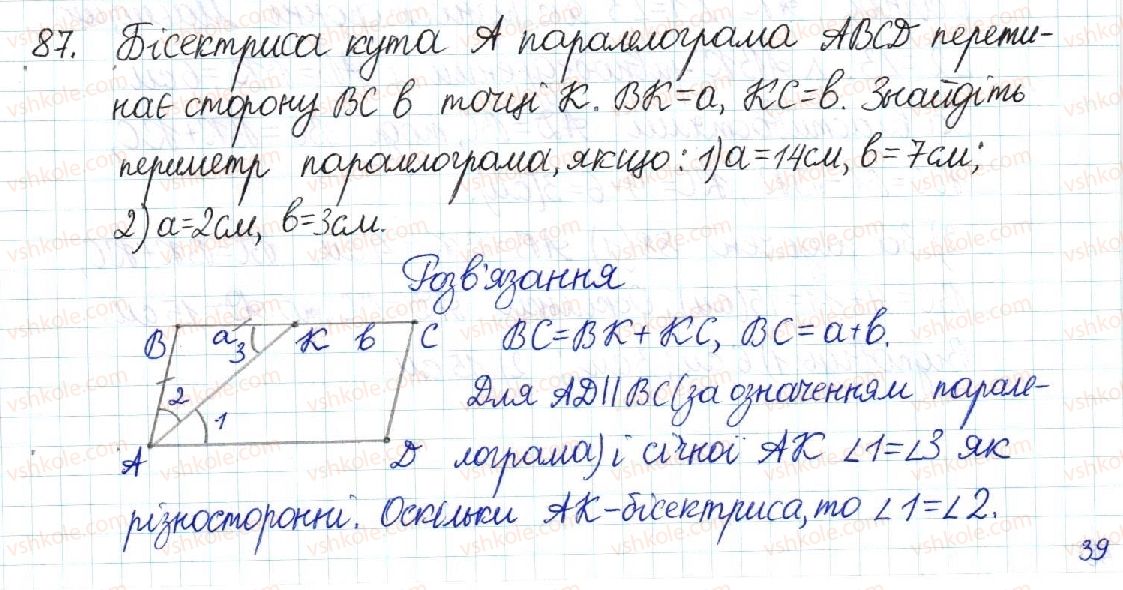 87. Бісектриса кута А паралелограма ABCD перети-
нає сторону BC в точці К. BK=a, KC=в. Знайдіть
периметр паралелограма, якщо: 1) a=14см, в=7см;
2) a=2см, в=3см.
Розв'язання
B a 3 K в C BC=BK+KC, BC=a+в.
2 1 Для AD||BC (за означенням парале-
A D лограма) і січної AK ∠1=∠3 як
різносторонні. Оскільки AK-бісектриса, то ∠1=∠2.
39
vshkole.com